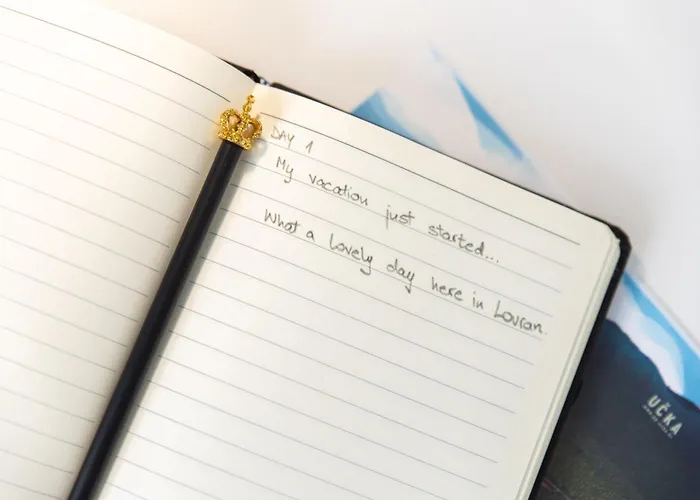 DAY 1
My vacation just started...
What a lovely day here in Lovran.
UČKA